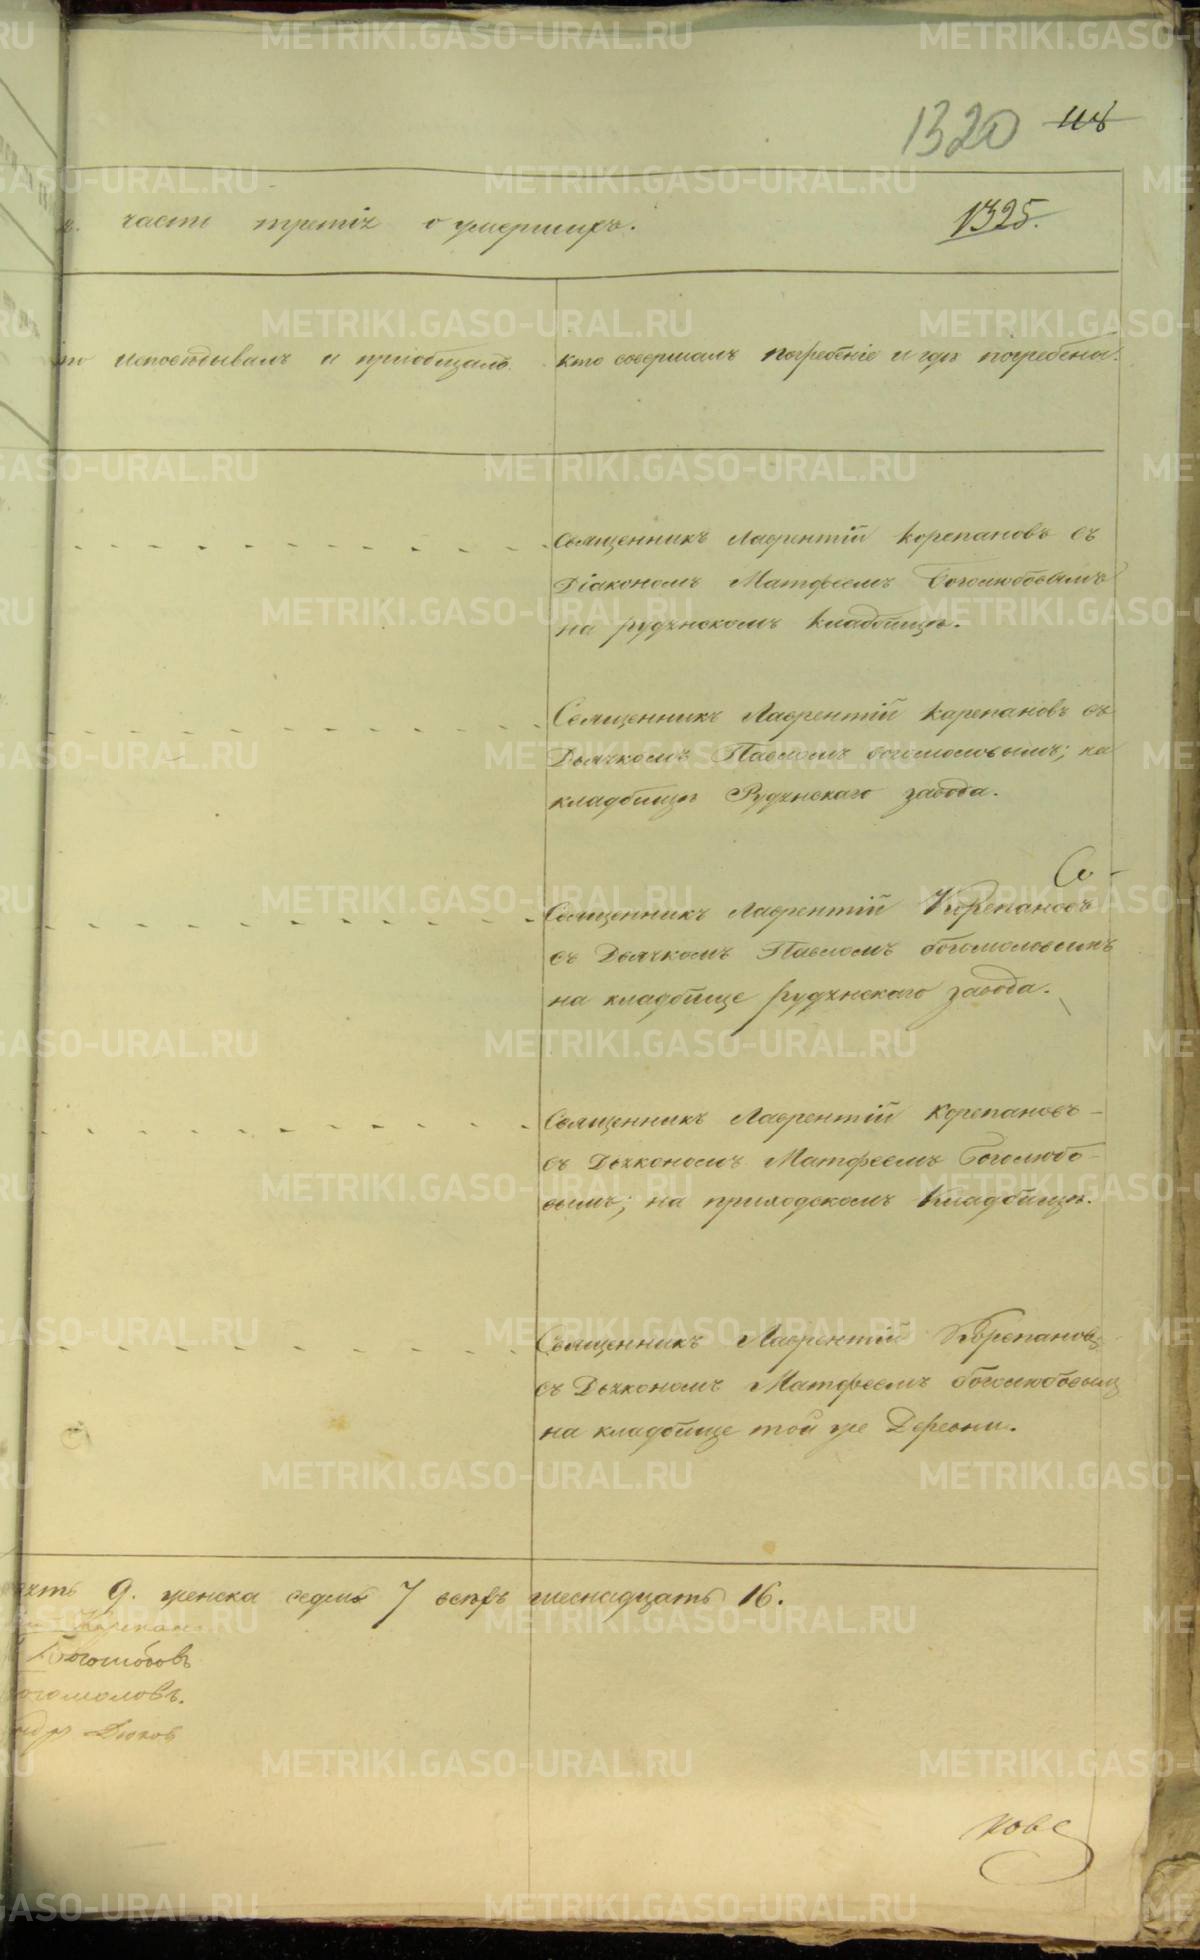 1320 118
части третіи о умершихъ. 1325.
исповѣдывалъ и приобщалъ.
кто совершалъ погребеніе и гдѣ погребены.
Священникъ Лаврентій Корепановъ съ
Діакономъ Матфеемъ Боголюбовымъ
на рудянскомъ кладбищѣ.
Священникъ Лаврентій Карепановъ съ
Дьячкомъ Павломъ богомоловымъ; на
кладбищѣ Рудянскаго завода.
Священникъ Лаврентій Корепановъ
съ Дьячкомъ Павломъ богомоловымъ
на кладбище рудянскаго завода.
Священникъ Лаврентій Корепановъ
съ Діякономъ Матфеемъ Боголюбо-
вымъ; на приходскомъ кладбищѣ.
Священникъ Лаврентій Корепановъ
съ Діякономъ Матфеемъ боголюбовымъ
на кладбище той же Деревни.
9. женска седмь 7 всѣхъ шеснадцать 16.
Корепановъ
Боголюбовъ
огомоловъ.
Дюков
ковс
METRIKI.GASO-URAL.RU